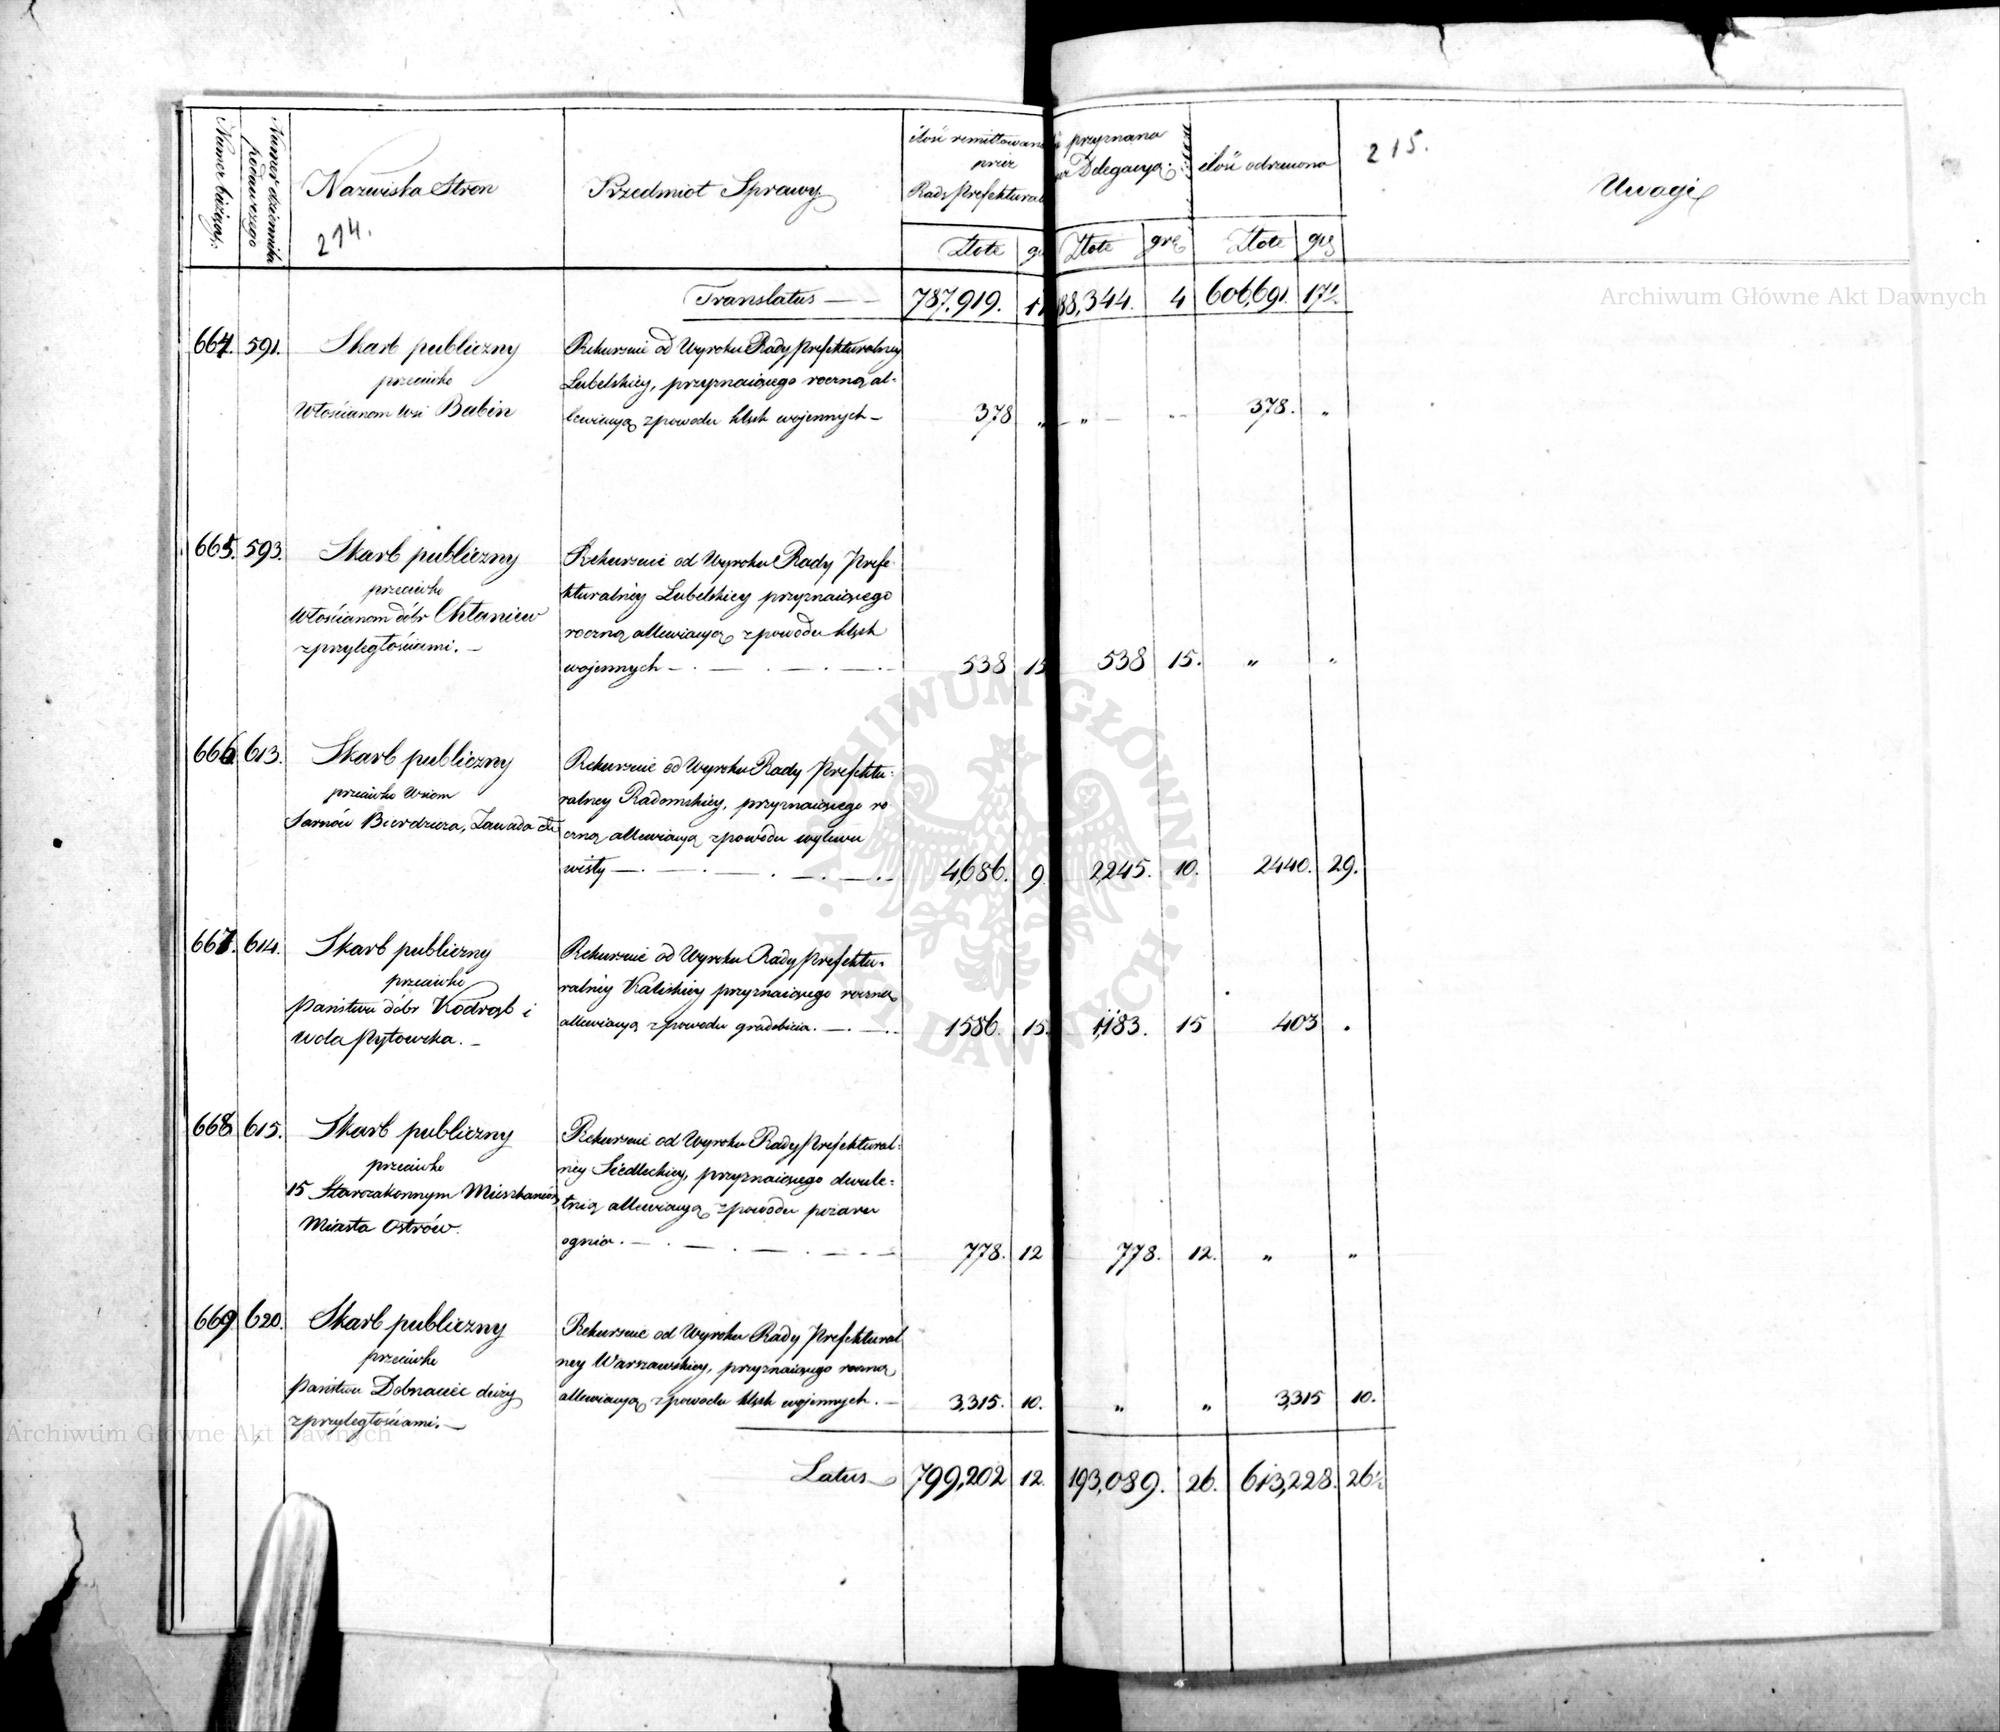 Numer bieżący:
Numer dziennika
podawczego
Nazwiska Stron
214.
Przedmiot Sprawy
ilość remittowana
przez
Radę Prefektural
przyznana
Delegacyą:
ilość odrzucona
215.
Uwagi
Złote
Złote
gr
Złote
Translatus
787,919.
88,344. 4 606,691.
664. 591. Skarb publiczny
przeciwko
Włościanom wsi Babin
Rekursuie od Wyroku Rady Prefekturalney
Lubelskiey, przyznaiącego roczną al-
lewiacyą z powodu klęsk wojennych –
378 „ „ 378. „
665. 593. Skarb publiczny
przeciwko
Włościanom dóbr Chłaniew
z przyległościami. –
Rekursuie od Wyroku Rady Prefe
kturalnéy Lubelskiey przyznaiącego
roczną allewiacyą z powodu klęsk
wojennych –
538 15 538 15. „ „
666 613. Skarb publiczny
przeciwko Wsiom
Sarnów Bierdzieza, Zawada etc
Rekursuie od Wyroku Rady Prefektu-
ralney Radomskiey, przyznaiącego ro
czną allewiacyą z powodu wylewu
wisły –
4,686. 9 2,245. 10. 2440. 29.
667. 614. Skarb publiczny
przeciwko
Państwu dóbr Kodrąb i
Wola Pytowska. –
Rekursuie od Wyroku Rady Prefektu-
ralnéy Kaliskiey przyznaiącego roczną
allewiacyą z powodu gradobicia. –
1586. 15. 1,183. 15 403 .
668 615. Skarb publiczny
przeciwko
15 Starozakonnym Mieszkańcom
Miasta Ostrów.
Rekursuie od Wyroku Rady Prefektural-
néy Siedleckiey, przyznaiącego dwule-
tnią allewiacyą z powodu pożaru
ognia. –
778. 12 778. 12. „ „
669 620. Skarb publiczny
przeciwko
Państwu Dobnawiec duży
z przyległościami. –
Rekursuie od Wyroku Rady Prefektural
ney Warszawskiey, przyznaiącego roczną
allewiacyą z powodu klęsk wojennych. –
3,315. 10. „ „ 3,315 10.
Latus
799,202 12. 193,089. 26. 613,228. 26½
Archiwum Główne Akt Dawnych
Archiwum Główne Akt Dawnych
ARCHIWUM GŁÓWNE AKT DAWNYCH